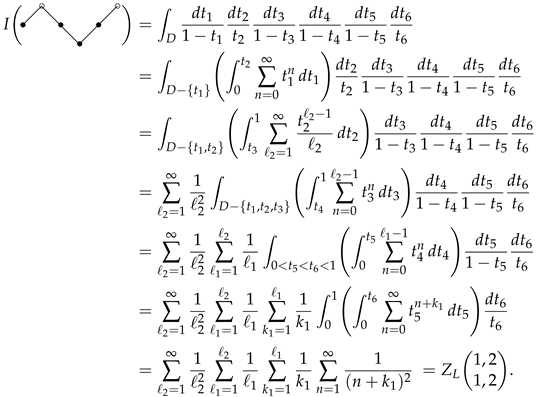 I( ) = ∫_D dt₁/(1 − t₁) dt₂/t₂ dt₃/(1 − t₃) dt₄/(1 − t₄) dt₅/(1 − t₅) dt₆/t₆
= ∫_{D−{t₁}} ( ∫_0^{t₂} ∑_{n=0}^{∞} t₁ⁿ dt₁ ) dt₂/t₂ dt₃/(1 − t₃) dt₄/(1 − t₄) dt₅/(1 − t₅) dt₆/t₆
= ∫_{D−{t₁,t₂}} ( ∫_{t₃}^1 ∑_{ℓ₂=1}^{∞} t₂^{ℓ₂−1}/ℓ₂ dt₂ ) dt₃/(1 − t₃) dt₄/(1 − t₄) dt₅/(1 − t₅) dt₆/t₆
= ∑_{ℓ₂=1}^{∞} 1/ℓ₂² ∫_{D−{t₁,t₂,t₃}} ( ∫_{t₄}^1 ∑_{n=0}^{ℓ₂−1} t₃ⁿ dt₃ ) dt₄/(1 − t₄) dt₅/(1 − t₅) dt₆/t₆
= ∑_{ℓ₂=1}^{∞} 1/ℓ₂² ∑_{ℓ₁=1}^{ℓ₂} 1/ℓ₁ ∫_{0<t₅<t₆<1} ( ∫_0^{t₅} ∑_{n=0}^{ℓ₁−1} t₄ⁿ dt₄ ) dt₅/(1 − t₅) dt₆/t₆
= ∑_{ℓ₂=1}^{∞} 1/ℓ₂² ∑_{ℓ₁=1}^{ℓ₂} 1/ℓ₁ ∑_{k₁=1}^{ℓ₁} 1/k₁ ∫_0^1 ( ∫_0^{t₆} ∑_{n=0}^{∞} t₅^{n+k₁} dt₅ ) dt₆/t₆
= ∑_{ℓ₂=1}^{∞} 1/ℓ₂² ∑_{ℓ₁=1}^{ℓ₂} 1/ℓ₁ ∑_{k₁=1}^{ℓ₁} 1/k₁ ∑_{n=1}^{∞} 1/(n + k₁)² = Z_L(1, 2 / 1, 2).